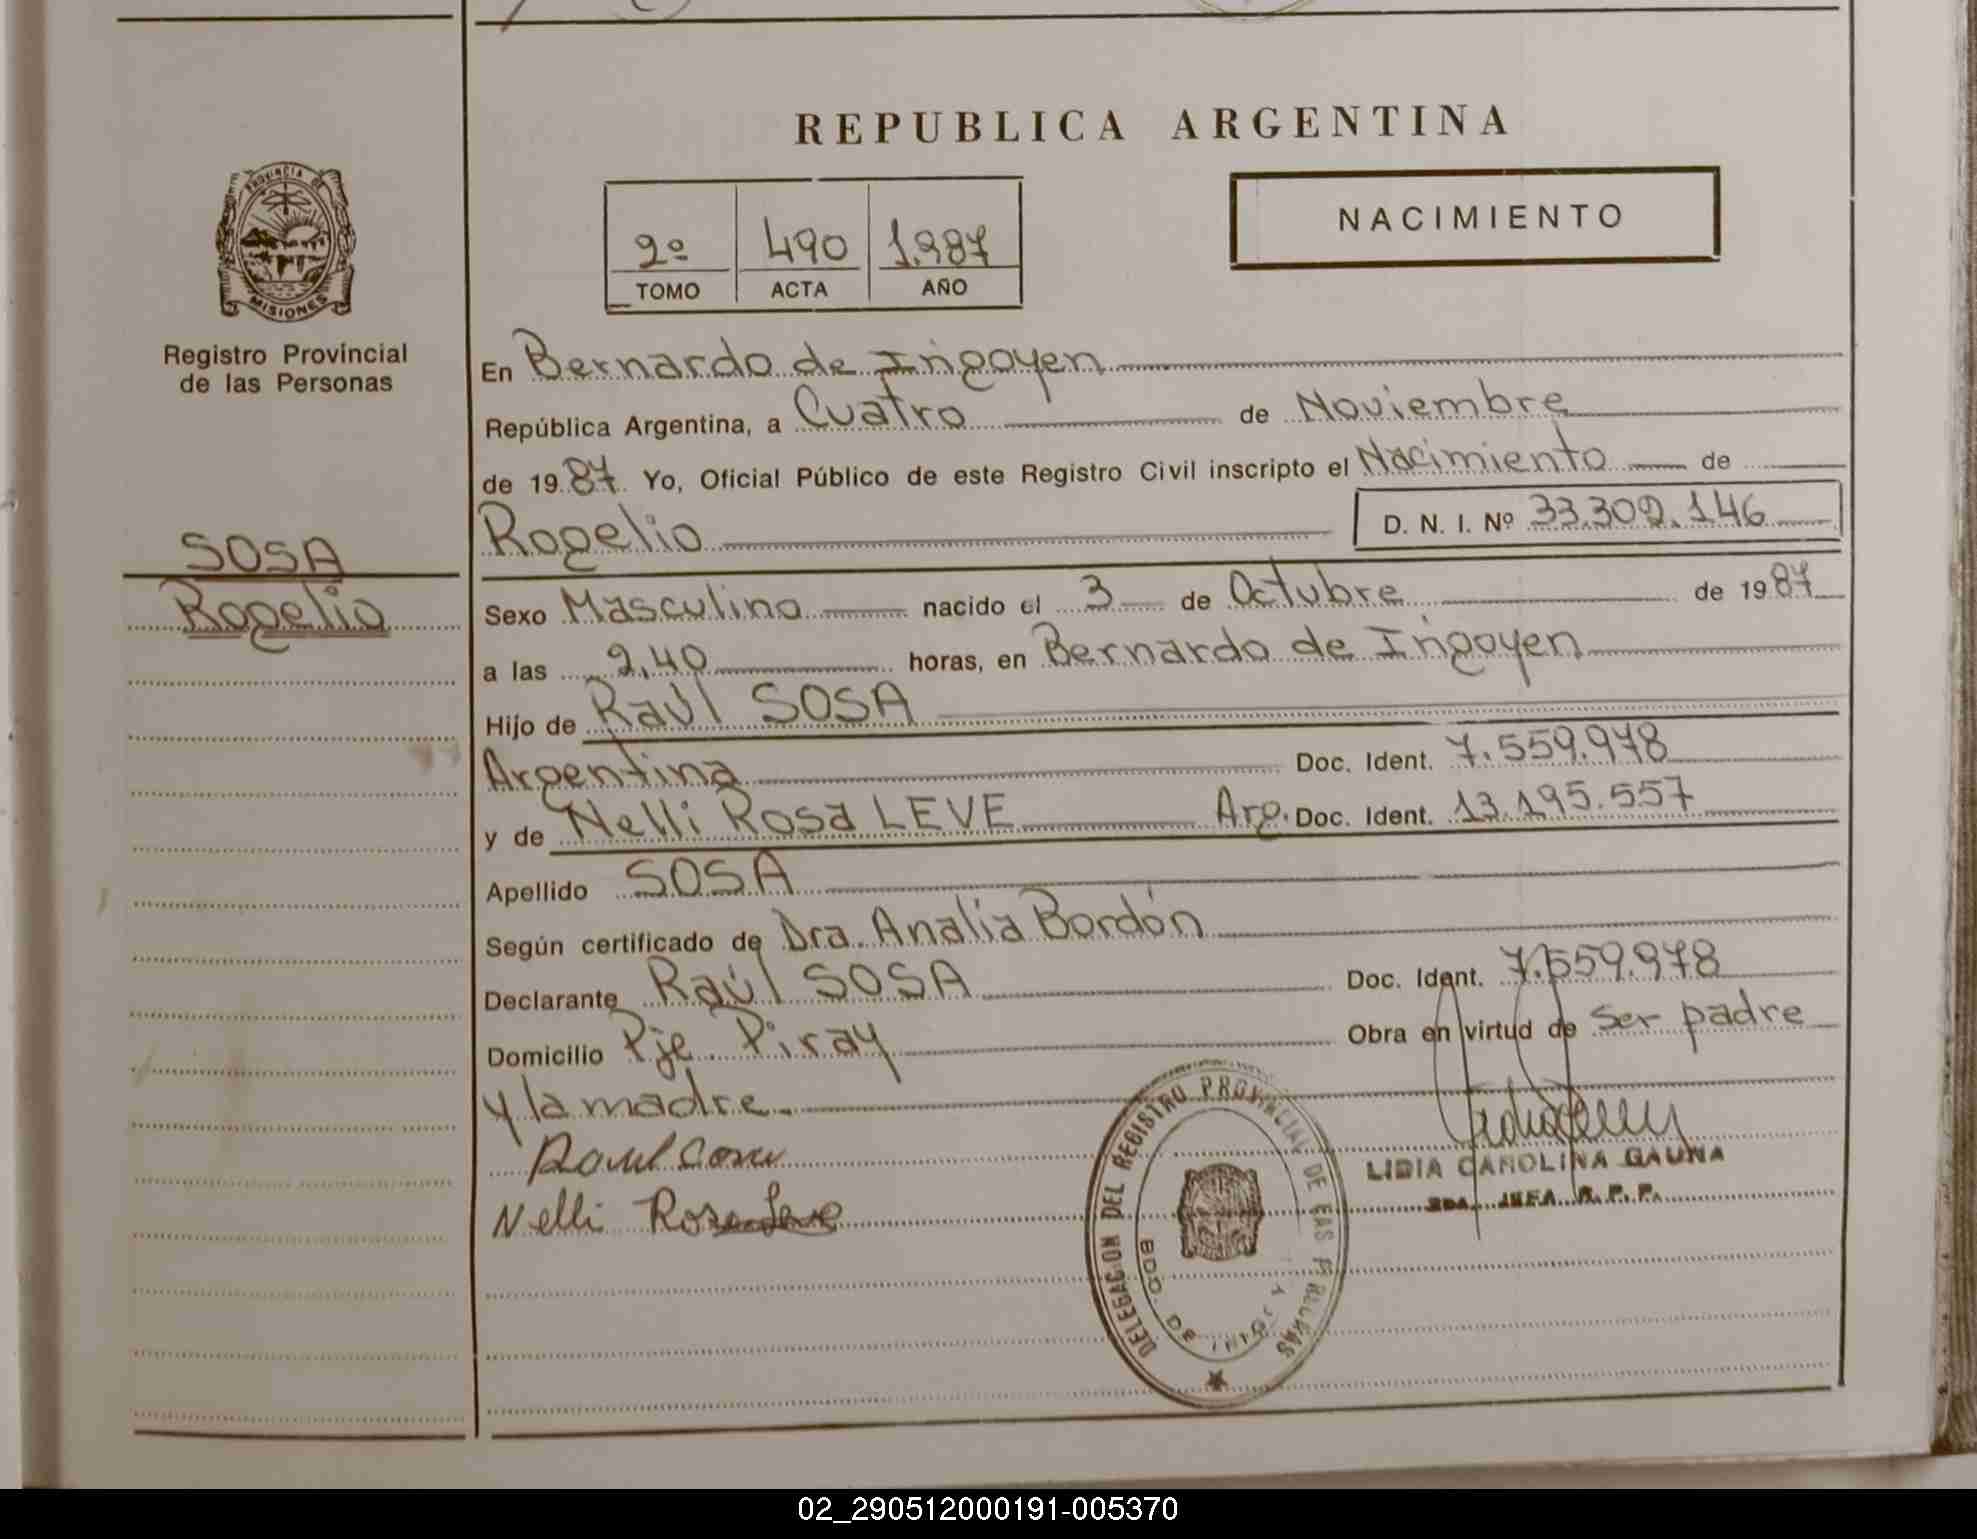 REPUBLICA ARGENTINA
NACIMIENTO
2º 490 1.987
TOMO ACTA AÑO
PROVINCIA DE
MISIONES
Registro Provincial
de las Personas
SOSA
Rogelio
En Bernardo de Irigoyen
República Argentina, a Cuatro de Noviembre
de 1987 Yo, Oficial Público de este Registro Civil inscripto el Nacimiento de
Rogelio D. N. I. Nº 33.302.146
Sexo Masculino nacido el 3 de Octubre de 1987
a las 2,40 horas, en Bernardo de Irigoyen
Hijo de Raúl SOSA
Argentina Doc. Ident. 7.559.978
y de Nelli Rosa LEVE Arg. Doc. Ident. 13.195.557
Apellido SOSA
Según certificado de Dra. Analía Bordón
Declarante Raúl SOSA Doc. Ident. 7.559.978
Domicilio Pje. Piray Obra en virtud de ser padre
y la madre.
Raul Sosa
Nelli Rosa Leve
LIDIA CAROLINA GAUNA
2DA. JEFA R. P. P.
DELEGACION DEL REGISTRO PROVINCIAL DE LAS PERSONAS
BDO. DE
02_290512000191-005370